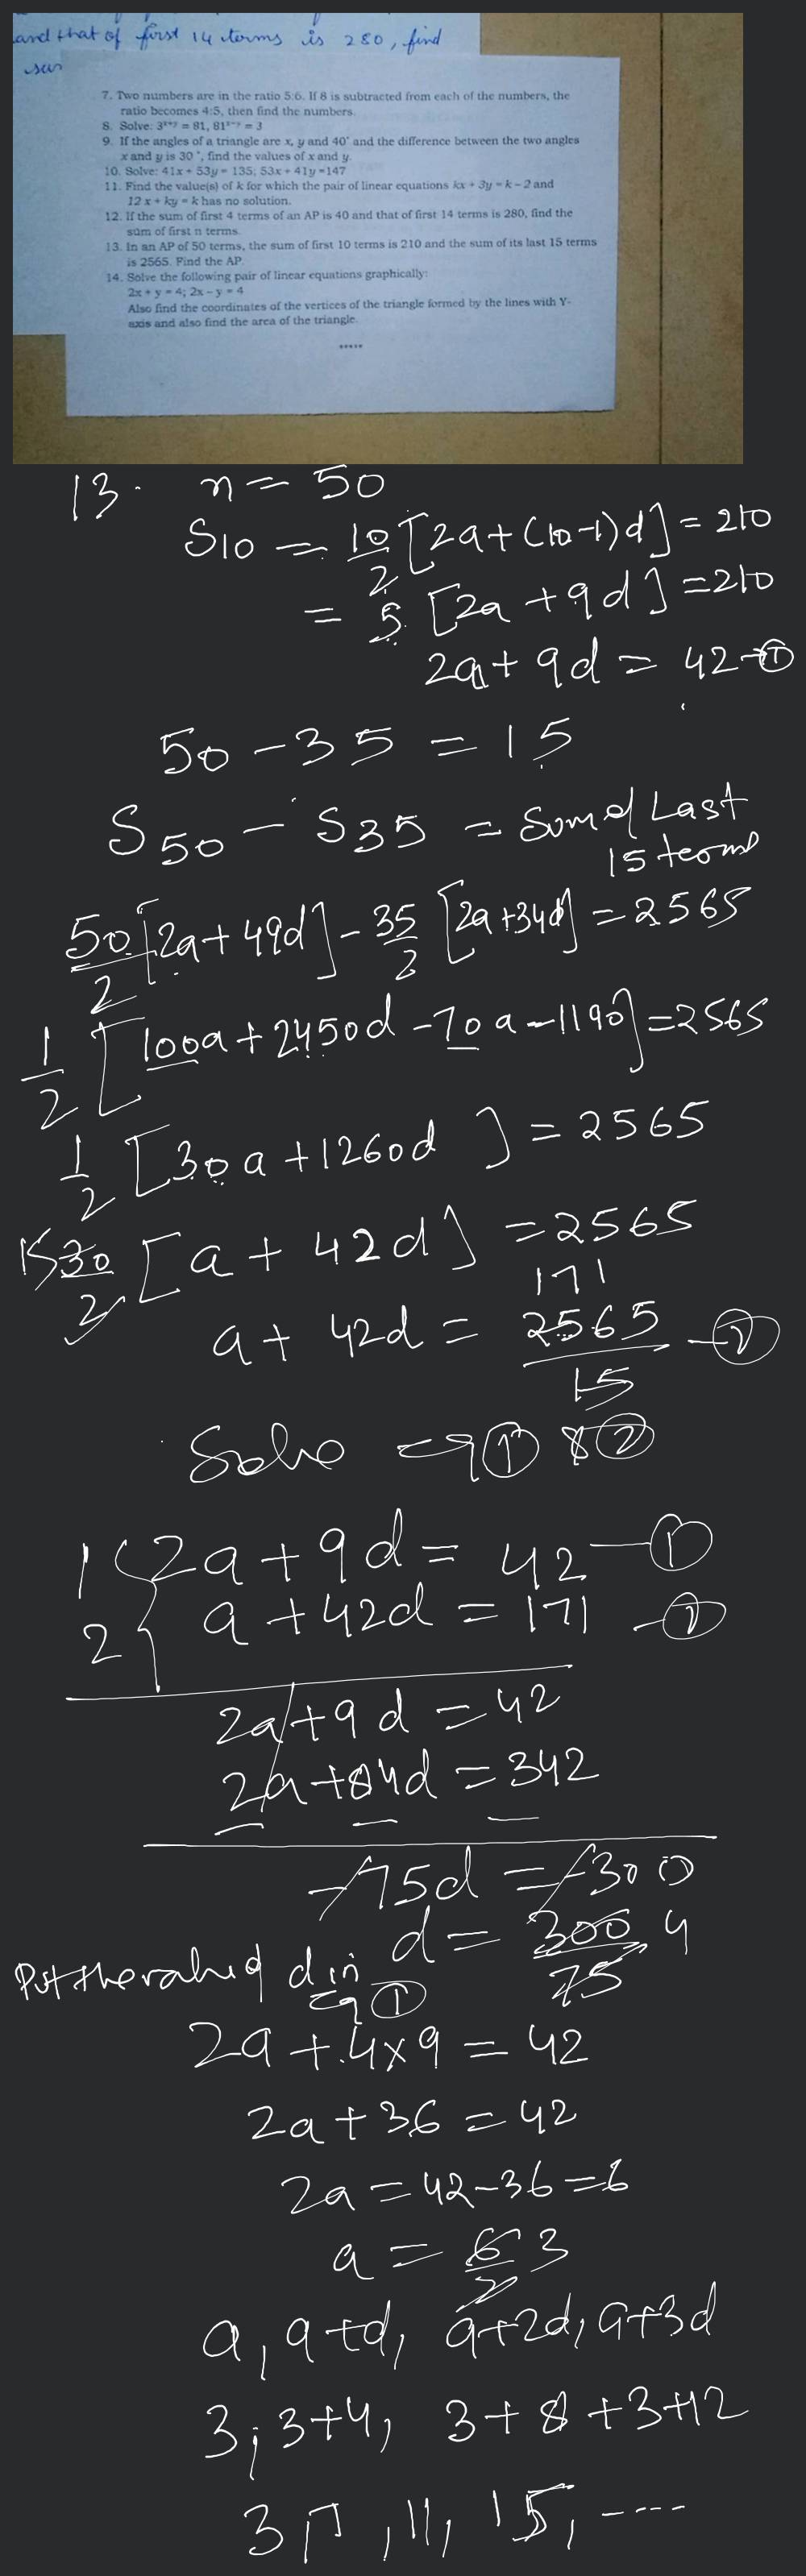 and that of first 14 terms is 280, find
7. Two numbers are in the ratio 5:6. If 8 is subtracted from each of the numbers, the
ratio becomes 4:5, then find the numbers.
8. Solve: 3ˣ⁺ʸ = 81, 81ˣ⁻ʸ = 3
9. If the angles of a triangle are x, y and 40° and the difference between the two angles
x and y is 30 °, find the values of x and y.
10. Solve: 41x + 53y = 135; 53x + 41y =147
11. Find the value(s) of k for which the pair of linear equations kx + 3y = k - 2 and
12 x + ky = k has no solution.
12. If the sum of first 4 terms of an AP is 40 and that of first 14 terms is 280, find the
sum of first n terms.
13. In an AP of 50 terms, the sum of first 10 terms is 210 and the sum of its last 15 terms
is 2565. Find the AP.
14. Solve the following pair of linear equations graphically:
2x + y = 4; 2x - y = 4
Also find the coordinates of the vertices of the triangle formed by the lines with Y-
axis and also find the area of the triangle.
*****
13. n = 50
S10 = 10/2 [2a + (10-1)d] = 210
= 5 [2a + 9d] = 210
2a + 9d = 42 - ①
50 - 35 = 15
S50 - S35 = Sum of Last
15 terms
50/2 [2a + 49d] - 35/2 [2a + 34d] = 2565
1/2 [100a + 2450d - 70a - 1190] = 2565
1/2 [30a + 1260d] = 2565
15 30/2 [a + 42d] = 2565
171
a + 42d = 2565/15 - ②
Solve eq ① & ②
1 (2a + 9d = 42 - ①
2 { a + 42d = 171 - ②
2a + 9d = 42
2a + 84d = 342
- - -
-75d = -300
d = 300/75 4
Put the value of d in
eq ①
2a + 4×9 = 42
2a + 36 = 42
2a = 42 - 36 = 6
a = 6/2 3
a, a+d, a+2d, a+3d
3, 3+4, 3+8+3+12
3, 7, 11, 15, ----